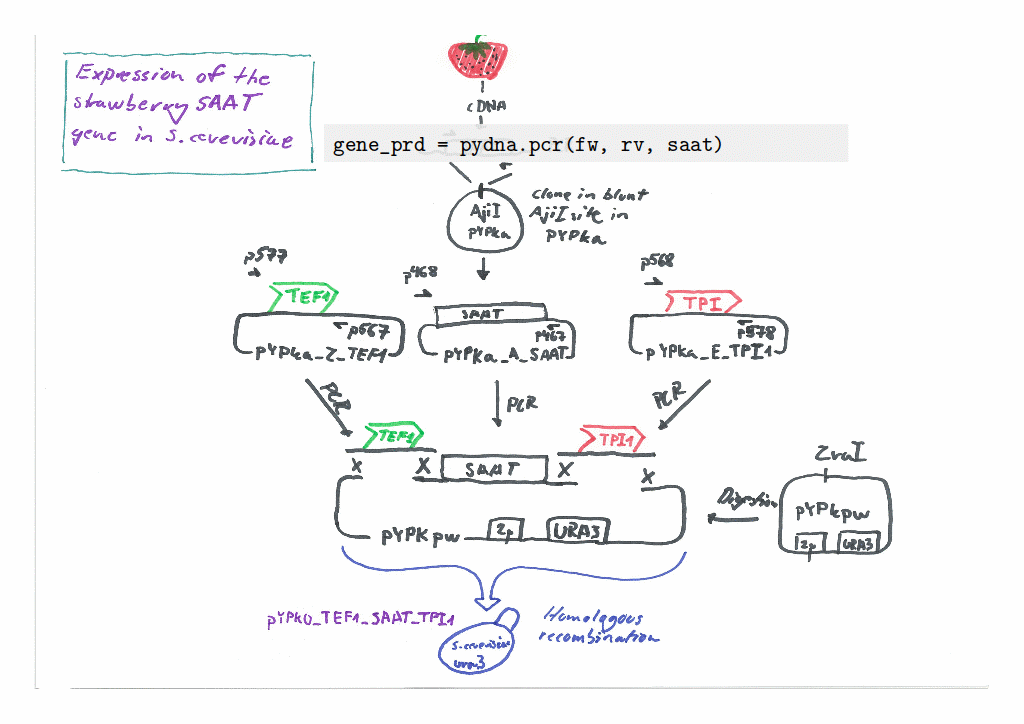 Expression of the
strawberry SAAT
gene in S. cerevisiae
cDNA
gene_prd = pydna.pcr(fw, rv, saat)
AjiI
pYPka
Clone in blunt
AjiI site in
pYPka
p577
TEF1
p567
pYPka_Z_TEF1
p468
SAAT
p467
pYPKa_A_SAAT
p568
TPI
p578
pYPka_E_TPI1
PCR
PCR
PCR
TEF1
TPI1
X
X
SAAT
X
X
pYPKpw
2µ
URA3
Digestion
ZraI
pYPkpw
2µ
URA3
pYPK0_TEF1_SAAT_TPI1
Homologous
recombination
S. cerevisiae
ura3